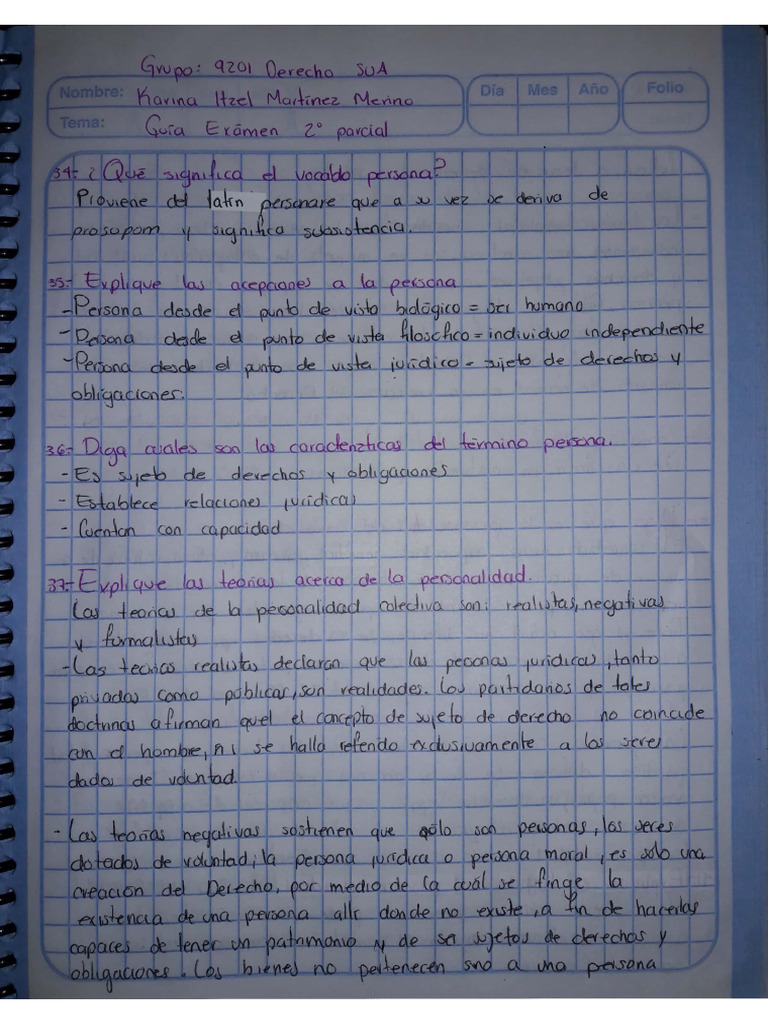 Grupo: 9201 Derecho SUA
Nombre: Karina Itzel Martínez Merino
Día Mes Año Folio
Tema: Guía Exámen 2º parcial
34.- ¿Qué significa el vocablo persona?
Proviene del latín personare que a su vez se deriva de
prosopom y significa subsistencia.
35.- Explique las acepciones a la persona
- Persona desde el punto de visto biológico = ser humano
- Persona desde el punto de vista filosófico = individuo independiente
- Persona desde el punto de vista jurídico = sujeto de derechos y
obligaciones.
36.- Diga cuales son las caracterizticas del término persona.
- Es sujeto de derechos y obligaciones
- Establece relaciones jurídicas
- Cuentan con capacidad
37.- Explique las teorías acerca de la personalidad.
Las teorías de la personalidad colectiva son: realistas, negativas
y formalistas
- Las teorías realistas declaran que las personas jurídicas, tanto
privadas como públicas, son realidades. Los partidarios de tales
doctrinas afirman quel el concepto de sujeto de derecho no coincide
con el hombre, ni se halla referido exclusivamente a los seres
dados de voluntad.
- Las teorías negativas sostienen que sólo son personas, los seres
dotados de voluntad, la persona jurídica o persona moral, es solo una
creación del Derecho, por medio de la cuál se finge la
existencia de una persona allí donde no existe, a fin de hacerlas
capaces de tener un patrimonio y de ser sujetos de derechos y
obligaciones. Los bienes no pertenecen sino a una persona